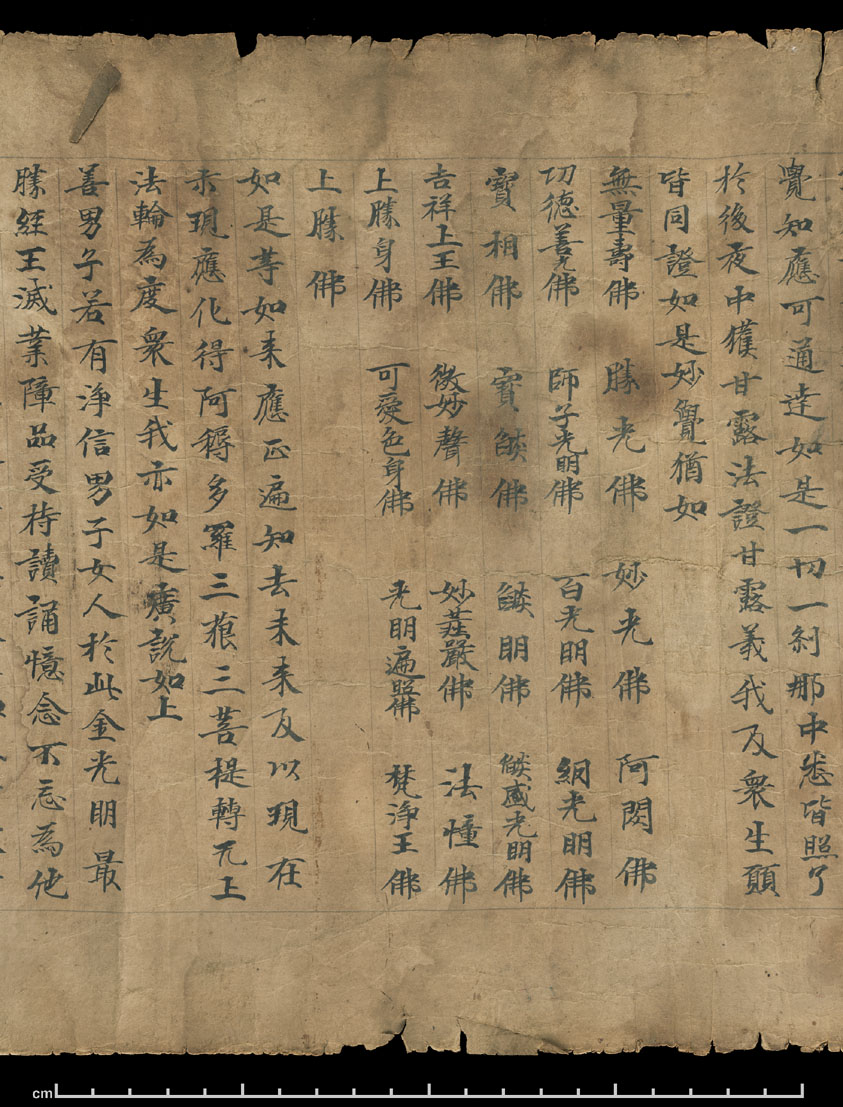 覺知應可通達如是一切一剎那中悉皆照了
於後夜中獲甘露法證甘露義我及衆生願
皆同證如是妙覺猶如
無量壽佛 勝光佛 妙光佛 阿閦佛
功德善光佛 師子光明佛 百光明佛 網光明佛
寶相佛 寶燄佛 燄明佛 燄盛光明佛
吉祥上王佛 微妙聲佛 妙莊嚴佛 法幢佛
上勝身佛 可愛色身佛 光明遍照佛 梵淨王佛
上勝佛
如是等如來應正遍知去未來及以現在
示現應化得阿耨多羅三藐三菩提轉无上
法輪為度衆生我亦如是廣說如上
善男子若有淨信男子女人於此金光明最
勝經王滅業障品受持讀誦憶念不忘為他